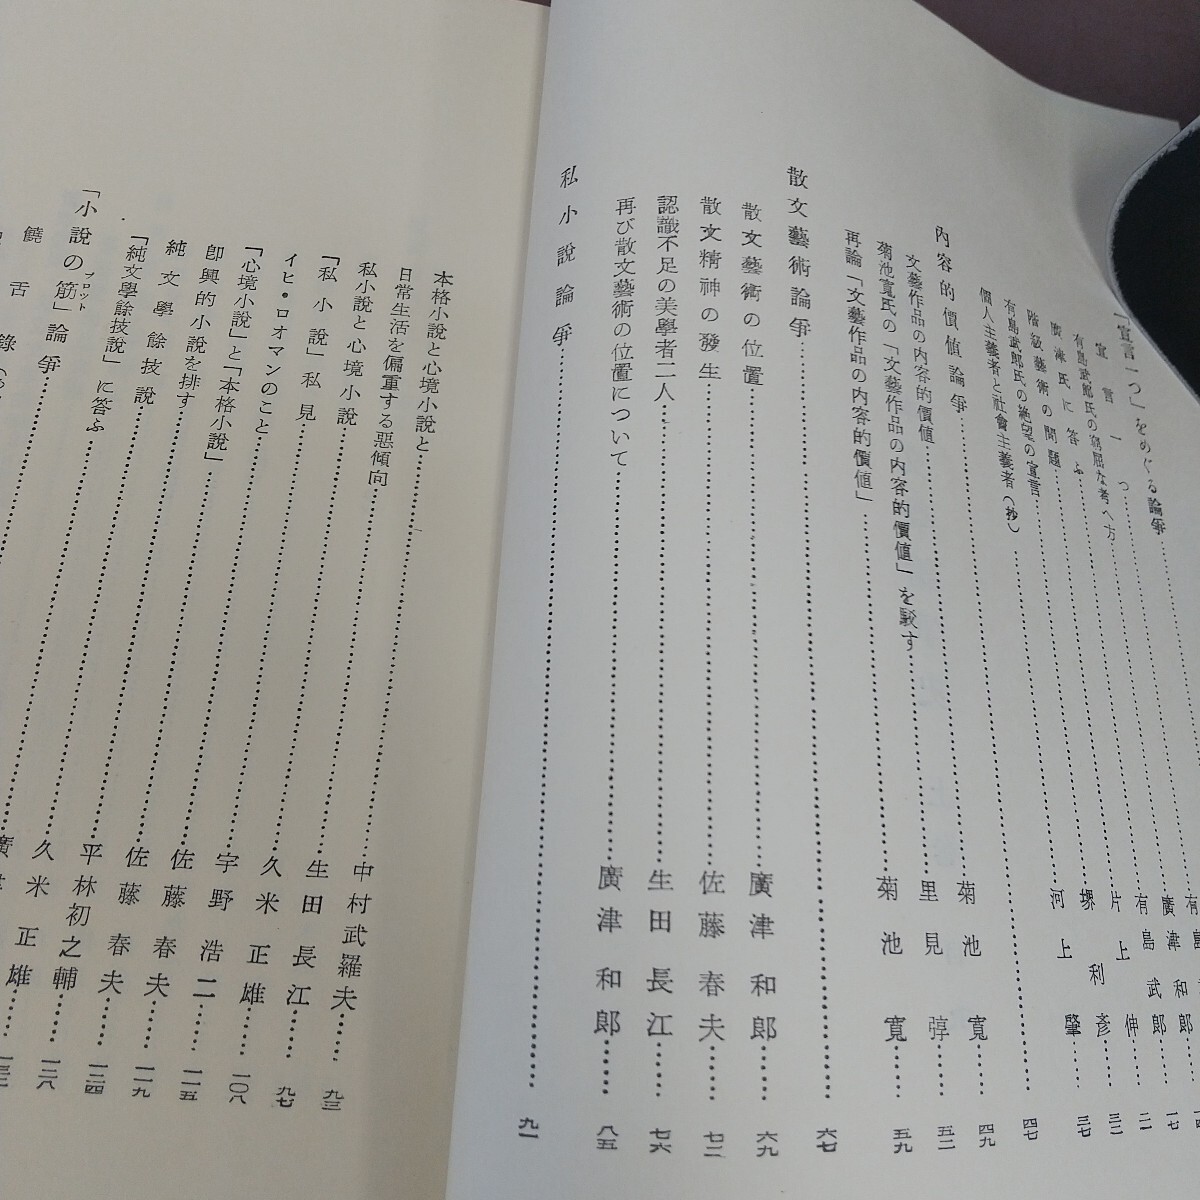 「宣言一つ」をめぐる論爭
宣言一つ
有島武郎氏の窮屈な考へ方
廣津氏に答ふ
階級藝術の問題
有島武郎氏の絶望の宣言
個人主義者と社會主義者（抄）
廣津和郎
有島武郎
片上伸
堺利彥
河上肇
一七
二一
三二
三七
內容的價値論爭
四七
文藝作品の內容的價値 菊池寬 四九
菊池寬氏の「文藝作品の內容的價値」を駁す 里見弴 五二
再論「文藝作品の內容的價値」 菊池寬 五九
散文藝術論爭 六七
散文藝術の位置 廣津和郎 六九
散文精神の發生 佐藤春夫 七二
認識不足の美學者二人 生田長江 七六
再び散文藝術の位置について 廣津和郎 八五
私小說論爭 九一
本格小說と心境小說と 中村武羅夫 九三
日常生活を偏重する惡傾向 生田長江 九七
私小說と心境小說 久米正雄 一〇八
「私小說」私見 宇野浩二 一一五
イヒ・ロオマンのこと 佐藤春夫 一一九
「心境小說」と「本格小說」 佐藤春夫 一二四
卽興的小說を排す 平林初之輔 一二八
純文學餘技說 久米正雄
「純文學餘技說」に答ふ
「小說の筋」論爭
プロット
饒舌錄